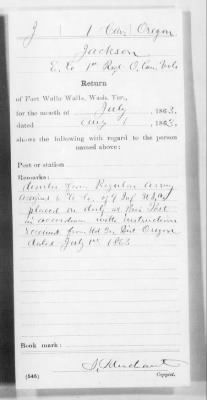 J 1 Cav Oregon
Jackson
E. Co 1st Regt O. Cav. Vols
Return
of Fort Walla Walla, Wash. Ter.,
for the month of July, 1863.
dated Aug 1, 1863.
shows the following with regard to the person
named above:
Post or station
Remarks:
from Regular Army
assigned to Co. 9 Inf
placed on duty at this Post
in accordance with instructions
from Hd Qrs Dist Oregon
dated July 1st 1863
Book mark:
(546) Copyist.